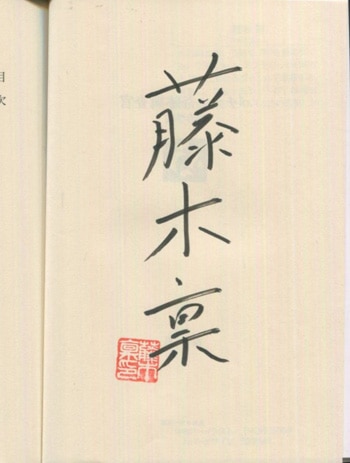 藤木稟
目次